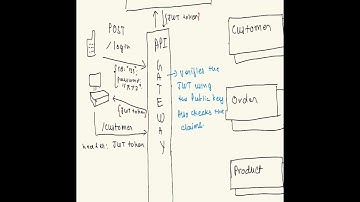 {JWT token}
POST
/login
API
GATEWAY
{JWT token}
/customer
header: JWT token
→ verifies the
JWT using
the public key
Also checks the
claims.
Customer
Order
Product